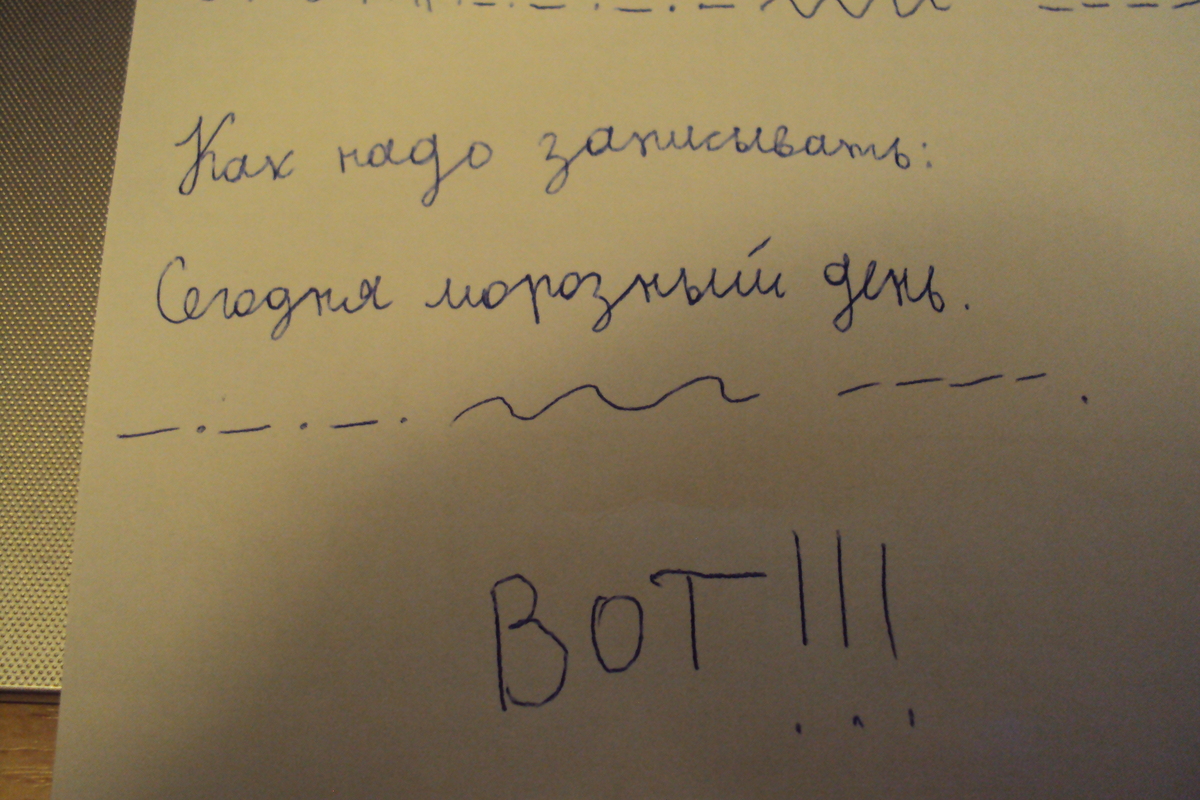 Как надо записывать:
Сегодня морозный день.
ВОТ!!!